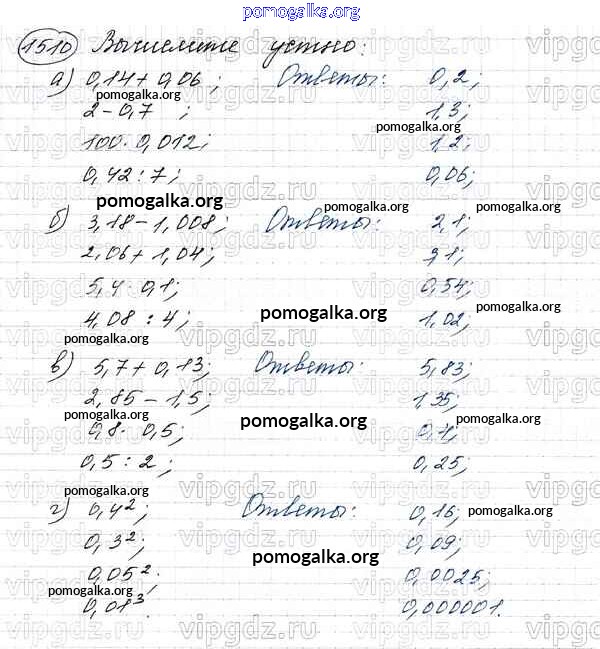 pomogalka.org
1510 Вычислите устно:
а) 0,14 + 0,06; Ответы: 0,2;
pomogalka.org
2 - 0,7 ; 1,3;
pomogalka.org
100 · 0,012; 1,2;
0,42 : 7; 0,06;
pomogalka.org pomogalka.org pomogalka.org
б) 3,18 - 1,008; Ответы: 2,1;
2,06 + 1,04; 3,1;
5,4 · 0,1; 0,54;
pomogalka.org pomogalka.org
4,08 : 4; 1,02;
в) 5,7 + 0,13; Ответы: 5,83;
2,85 - 1,5; 1,35;
pomogalka.org pomogalka.org pomogalka.org
0,8 · 0,5; 0,4;
0,5 : 2; 0,25;
pomogalka.org
г) 0,4²; Ответы: 0,16;
pomogalka.org
0,3²; 0,09;
pomogalka.org
0,05²; 0,0025;
pomogalka.org
0,01³. 0,000001.
vipgdz.ru vipgdz.ru vipgdz.ru